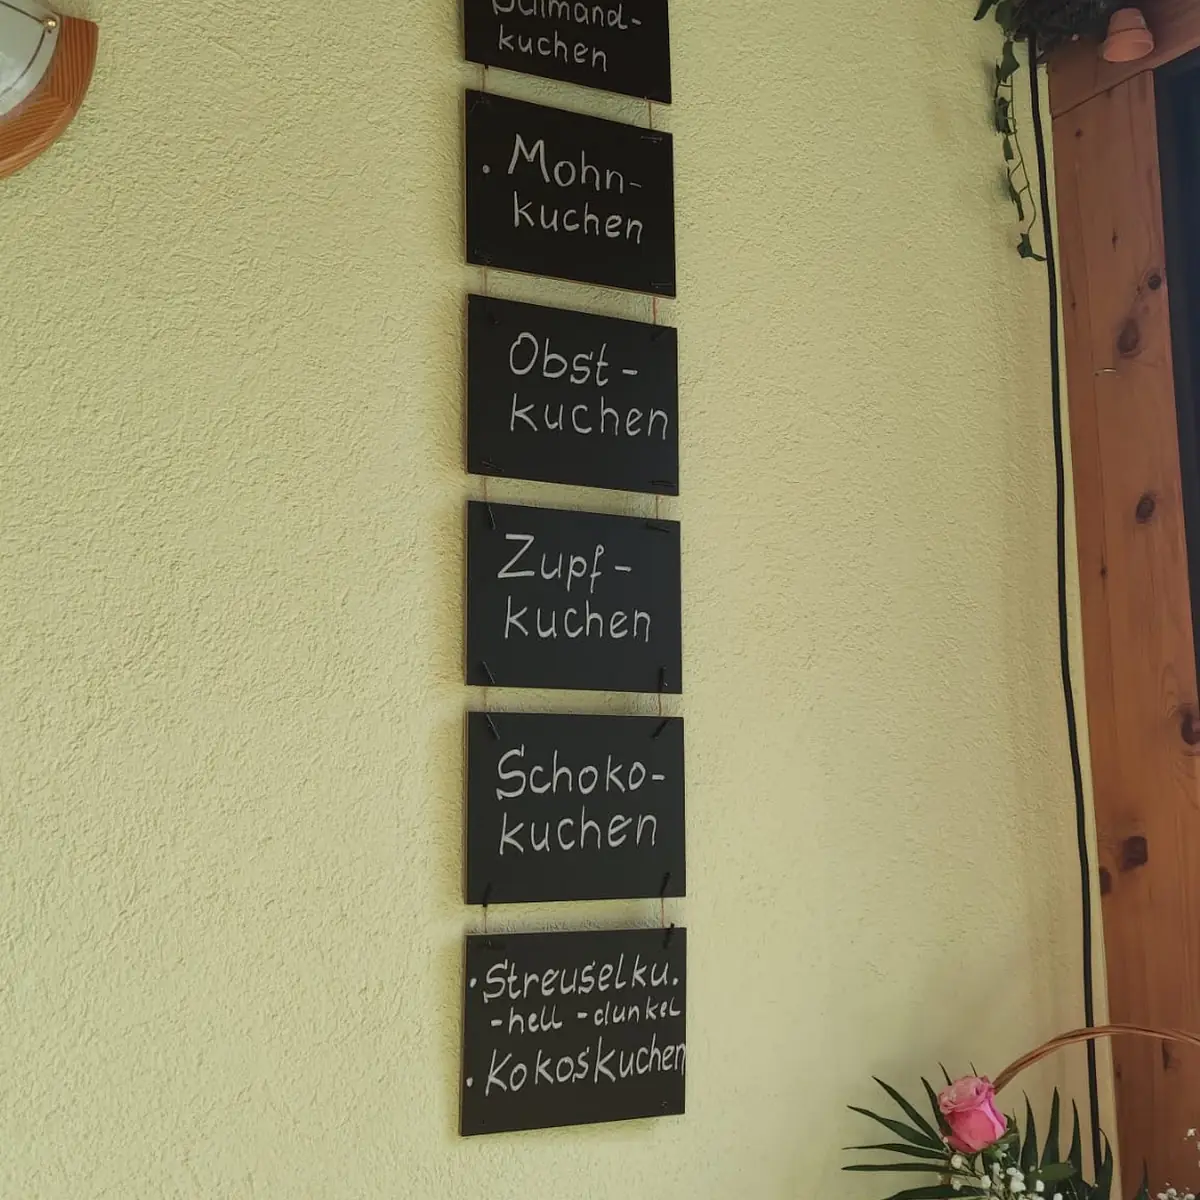 kuchen
· Mohn-
kuchen
Obst-
kuchen
Zupf-
kuchen
Schoko-
kuchen
· Streuselku.
-hell -dunkel
· Kokoskuchen